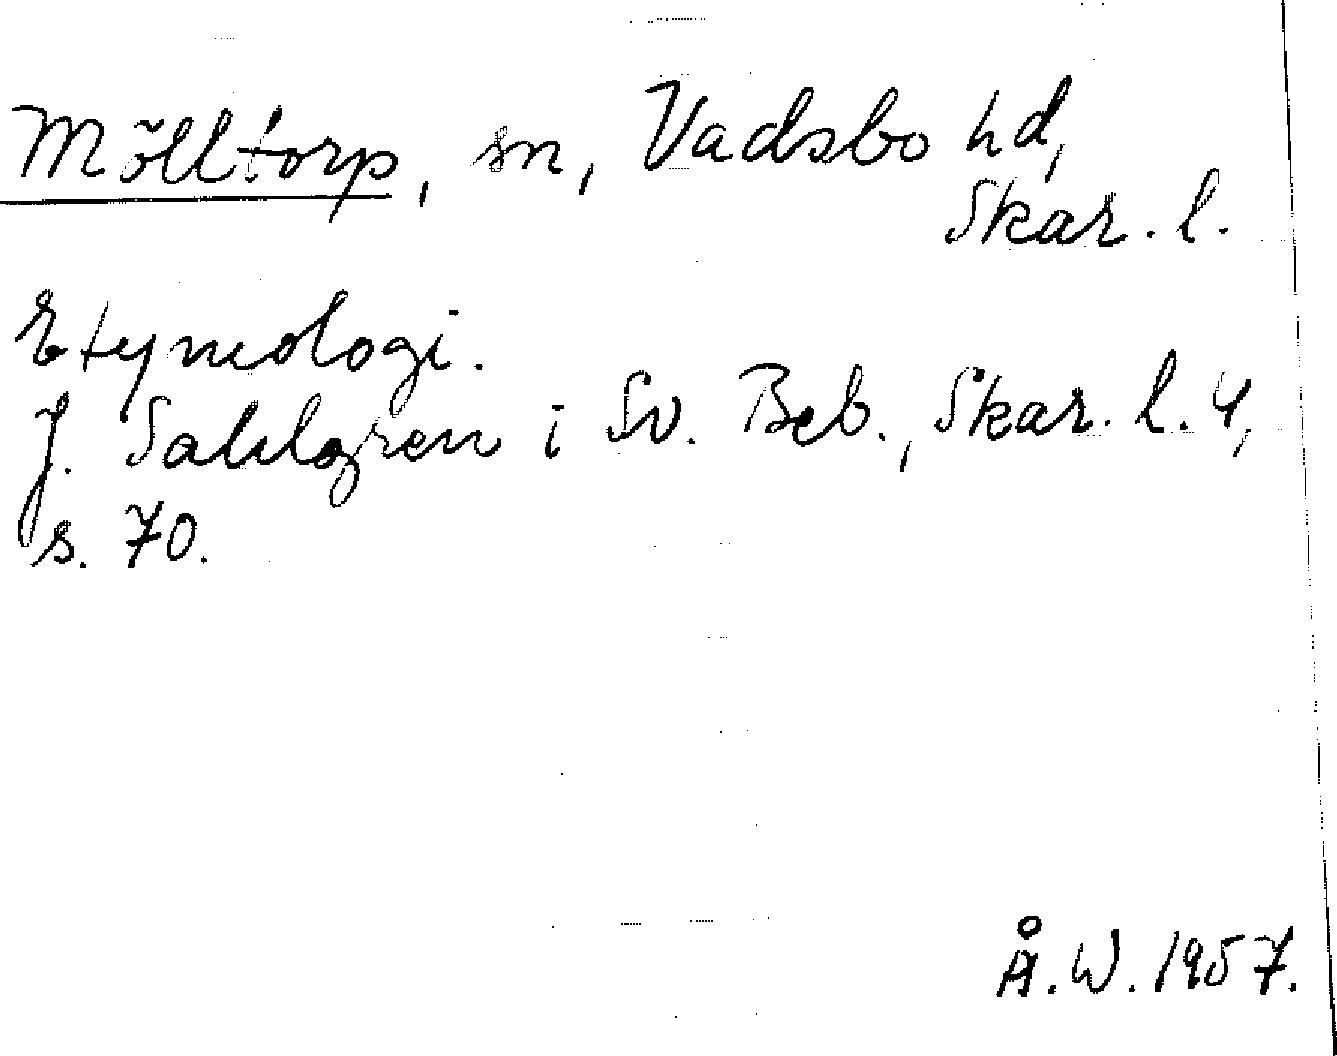 Mölltorp, sn, Vadsbo hd,
Skar. l.
Etymologi.
J. Sahlgren i Sv. Beb., Skar. l. 4,
s. 70.
Å.W. 1957.